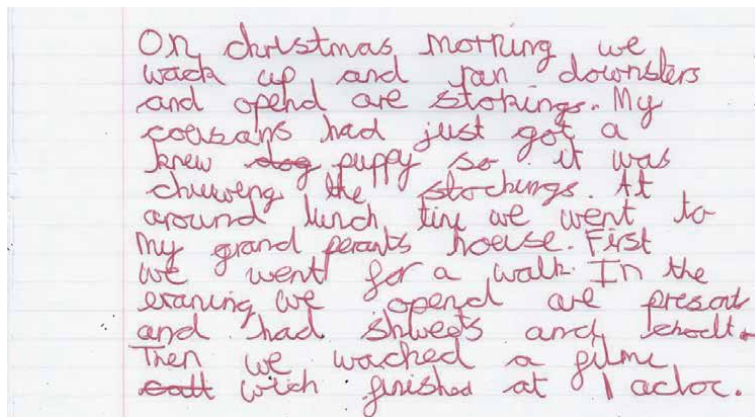 On christmas morning we
wack up and ran downsters
and opend are stokings. My
cousans had just got a
knew dog puppy so it was
chuweng the stockings. At
around lunch time we went to
my grand perants house. First
we went for a walk. In the
evaning we opend are presents
and had shweets and
Then we wached a filme
wich finished at 1 acloc.